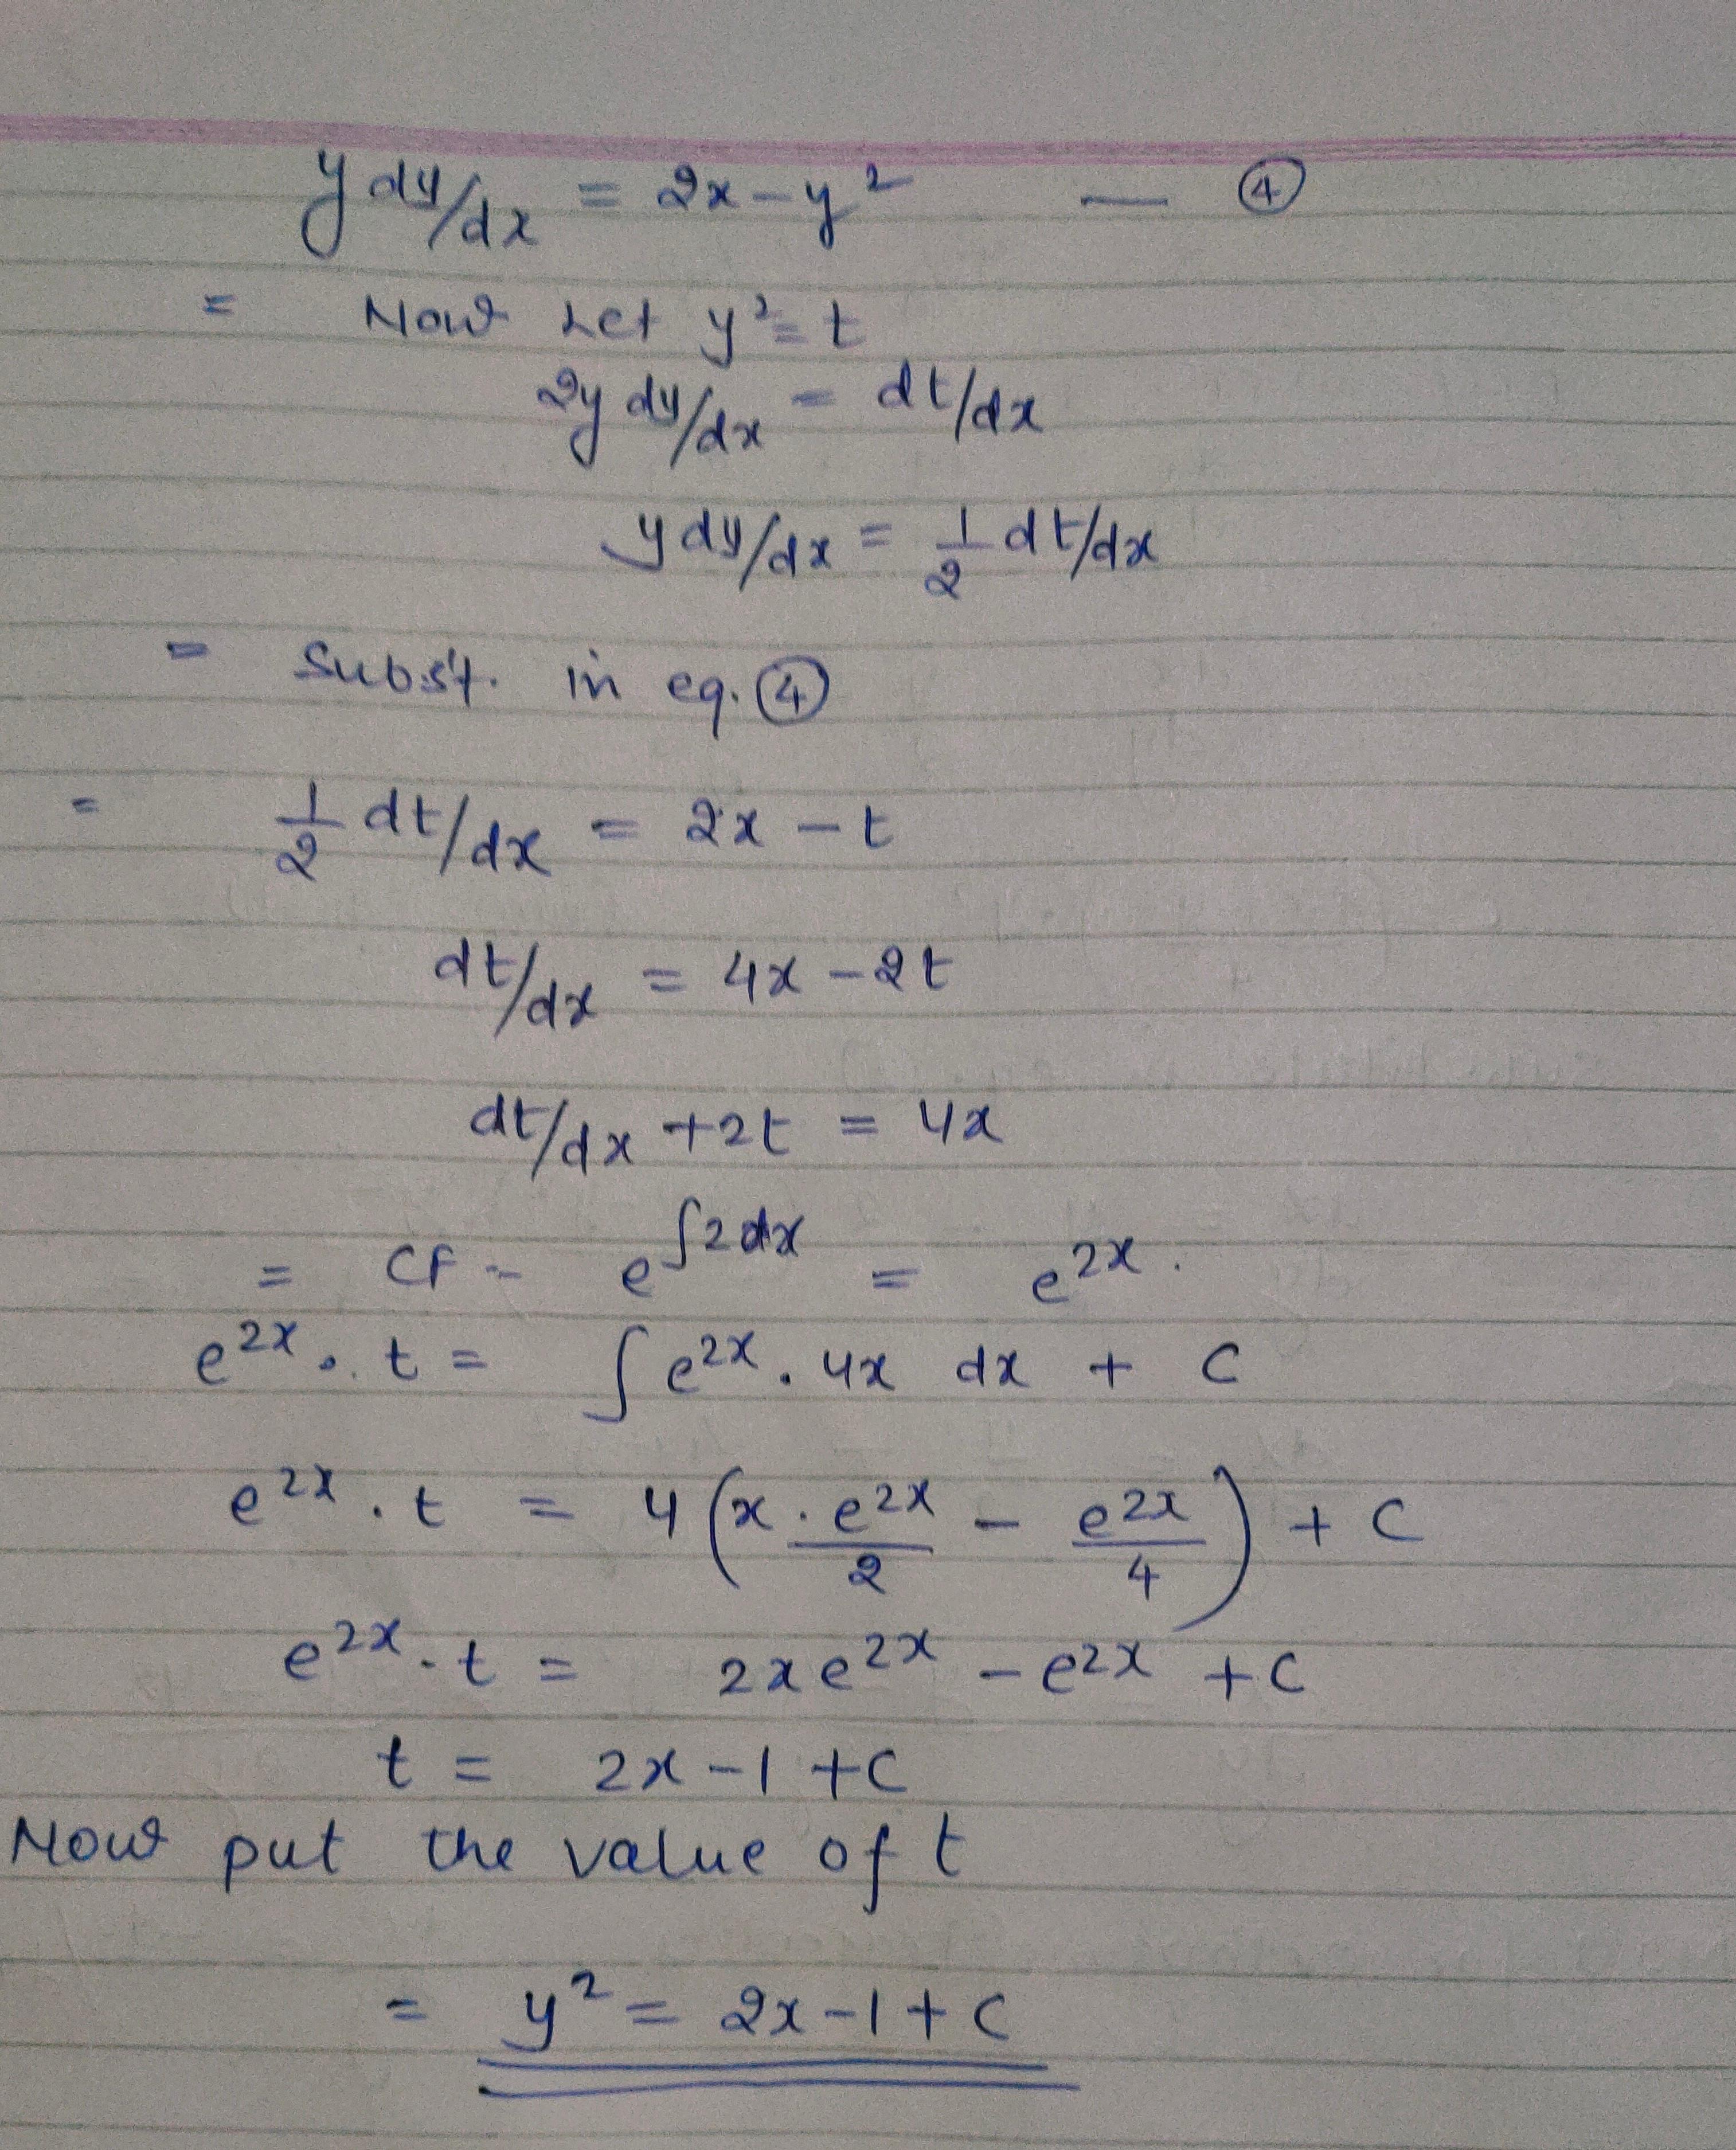 y dy/dx = 2x - y² — ④
= Now Let y² = t
2y dy/dx = dt/dx
y dy/dx = 1/2 dt/dx
= subst. in eq. ④
= 1/2 dt/dx = 2x - t
dt/dx = 4x - 2t
dt/dx + 2t = 4x
= CF - e^∫2dx = e^2x.
e^2x . t = ∫ e^2x . 4x dx + C
e^2x . t = 4 (x . e^2x/2 - e^2x/4) + C
e^2x . t = 2xe^2x - e^2x + C
t = 2x - 1 + C
Now put the value of t
= y² = 2x - 1 + C